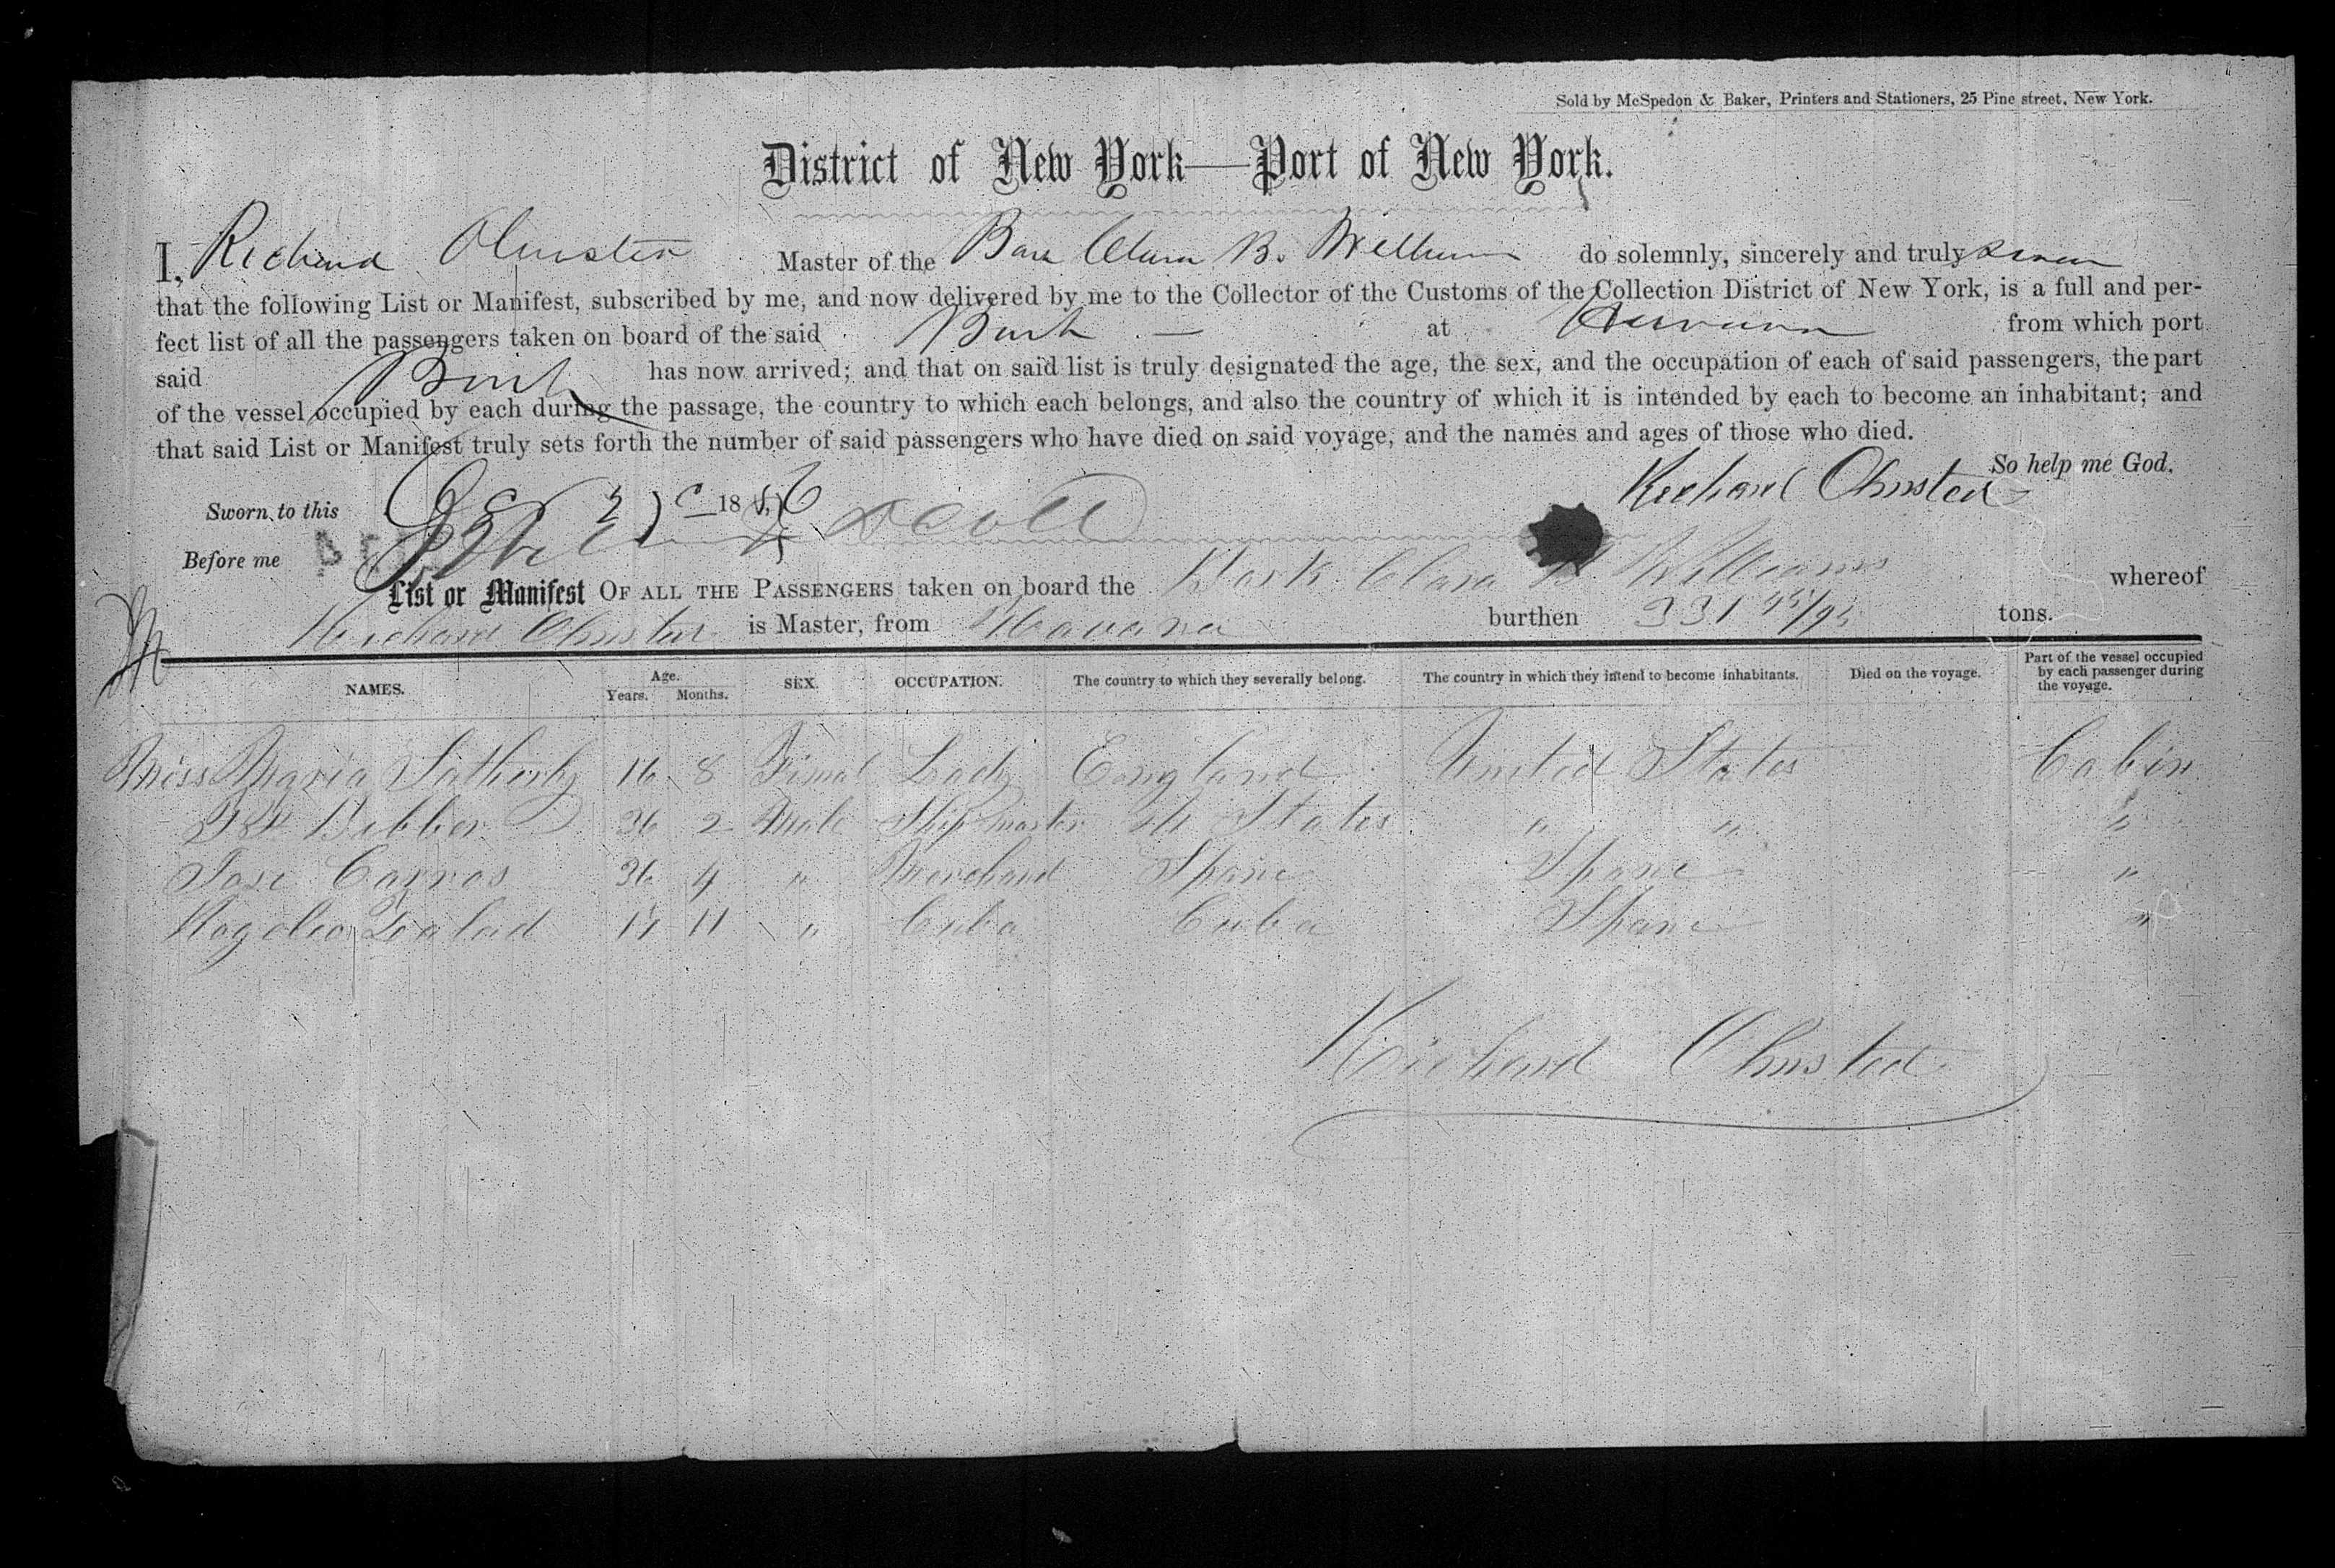 Sold by McSpedon & Baker, Printers and Stationers, 25 Pine street, New York.
District of New York—Port of New York.
I, Richard Olmsted Master of the Bark Clara B. Williams do solemnly, sincerely and truly swear
that the following List or Manifest, subscribed by me, and now delivered by me to the Collector of the Customs of the Collection District of New York, is a full and per-
fect list of all the passengers taken on board of the said Bark at Havana from which port
said Bark has now arrived; and that on said list is truly designated the age, the sex, and the occupation of each of said passengers, the part
of the vessel occupied by each during the passage, the country to which each belongs, and also the country of which it is intended by each to become an inhabitant; and
that said List or Manifest truly sets forth the number of said passengers who have died on said voyage, and the names and ages of those who died.
So help me God,
Richard Olmsted
Sworn to this 1856
Before me
List or Manifest OF ALL THE PASSENGERS taken on board the Bark Clara B Williams whereof
Richard Olmsted is Master, from Havana burthen 331 tons.
NAMES. Age. Years. Months. SEX. OCCUPATION. The country to which they severally belong. The country in which they intend to become inhabitants. Died on the voyage. Part of the vessel occupied by each passenger during the voyage.
Miss Maria 16 8 Fimal Lady England United States Cabin
Bibber 36 2 Male Ship master U States " " "
Jose Carros 36 4 " Merchant Spane Spane "
Rogelio 11 " Cuba Cuba Spane "
Richard Olmsted